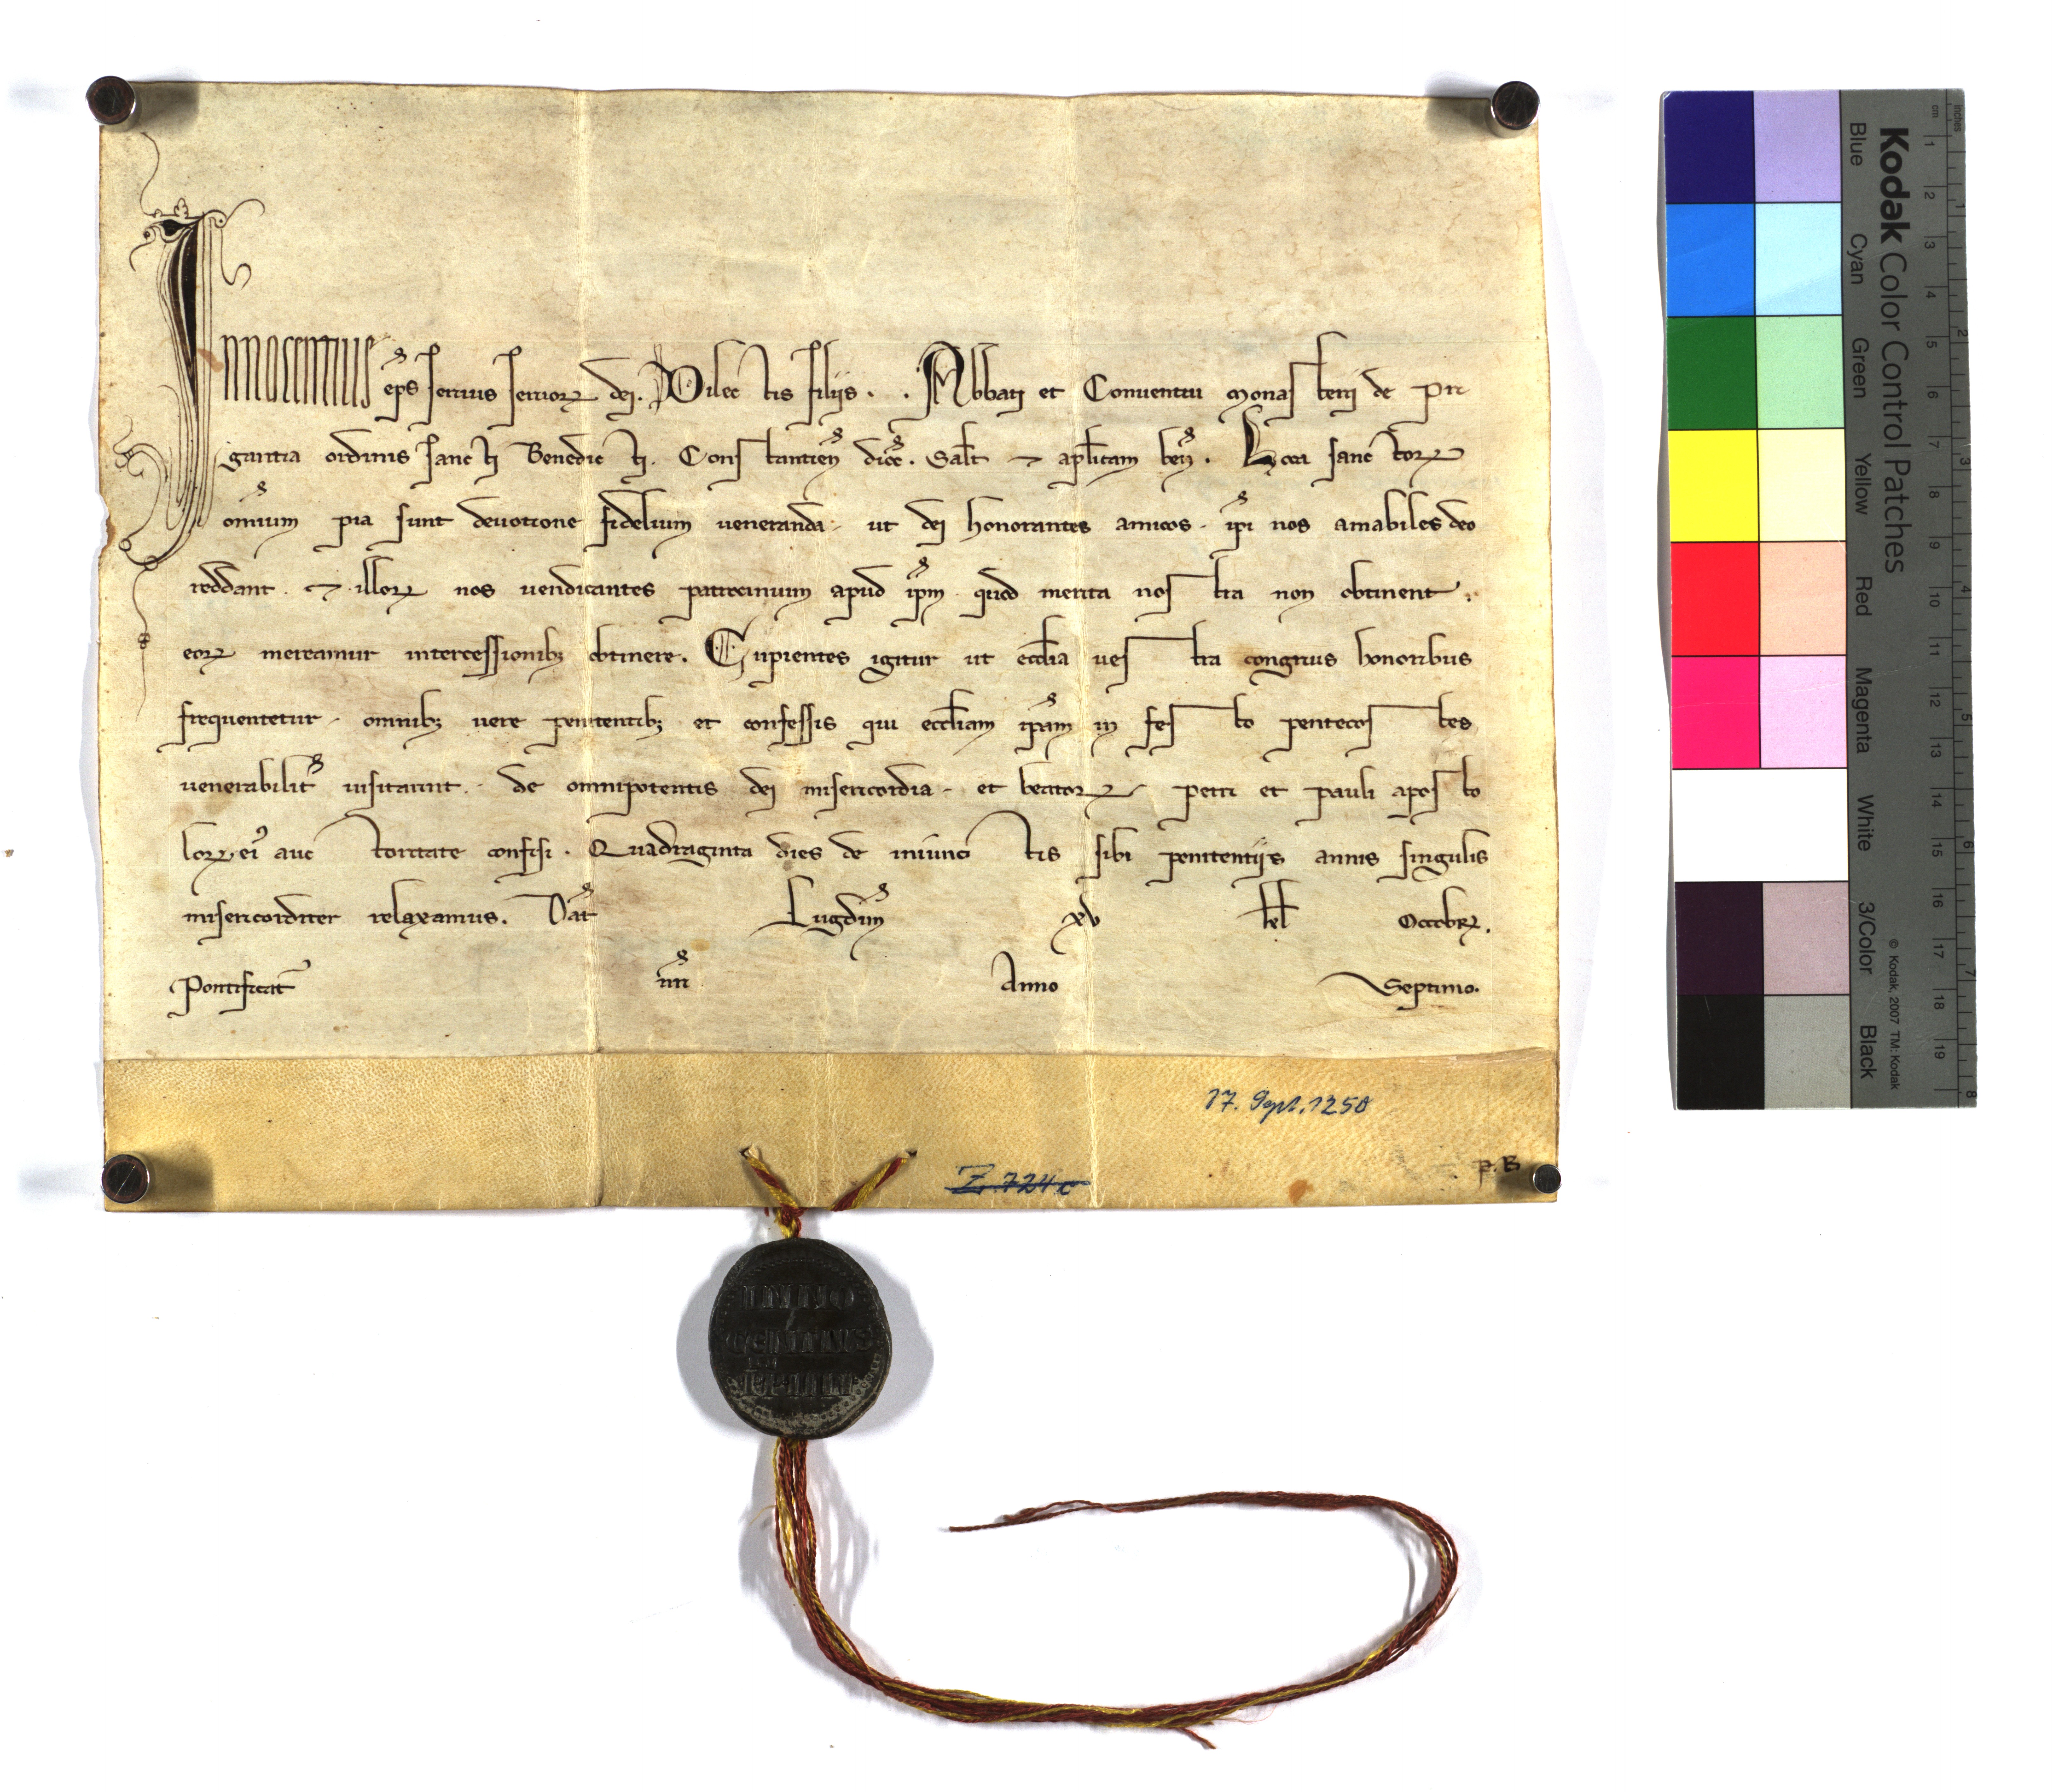 Innocentius ep̄s seruus seruorꝝ dei. Dilectis filijs .. Abbati et Conuentui Monasterij de Pri
gantia ordinis sancti Benedicti. Constantien̄ dioc̄. Salt̄ ⁊ aplicam ben̄. Loca sanctorꝝ
om̄ium pia sunt deuotione fidelium ueneranda. ut dei honorantes amicos. ip̄i nos amabiles deo
reddant. ⁊ illorꝝ nos uendicantes patrocinium apud ip̄m quod merita nostra non obtinent.
eorꝝ mereamur intercessionibꝫ obtinere. Cupientes igitur ut eccl̄ia uestra congruis honoribus
frequentetur. omnibꝫ uere penitentibꝫ et confessis qui eccl̄iam ip̄am in festo pentecostes
uenerabilit̄ uisitarint. de omnipotentis dei misericordia. et beatorꝝ petri et pauli aposto
lorꝝ ei᾽ auctoritate confisi. Quadraginta dies de iniunctis sibi penitentijs annis singulis
misericorditer relaxamus. Dat̄ Lugdun̄ xv kl̄ Octobrꝝ.
Pontificat̄ nr̄i Anno Septimo.
17. Sept. 1250
Z. 724 c
p. B
INNO
CENTIUS
PP IIII
Kodak Color Control Patches
© Kodak, 2007 TM: Kodak
Blue Cyan Green Yellow Red Magenta White 3/Color Black
cm 1 2 3 4 5 6 7 8 9 10 11 12 13 14 15 16 17 18 19
inches 1 2 3 4 5 6 7 8